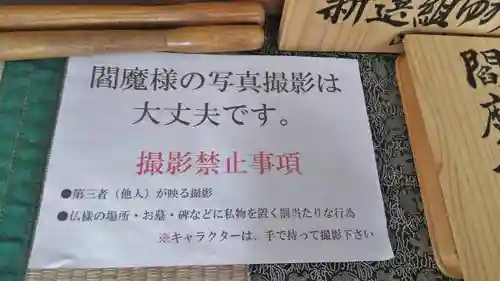 新選組
閻魔
閻魔様の写真撮影は
大丈夫です。
撮影禁止事項
●第三者（他人）が映る撮影
●仏様の場所・お墓・碑などに私物を置く罰当たりな行為
※キャラクターは、手で持って撮影下さい